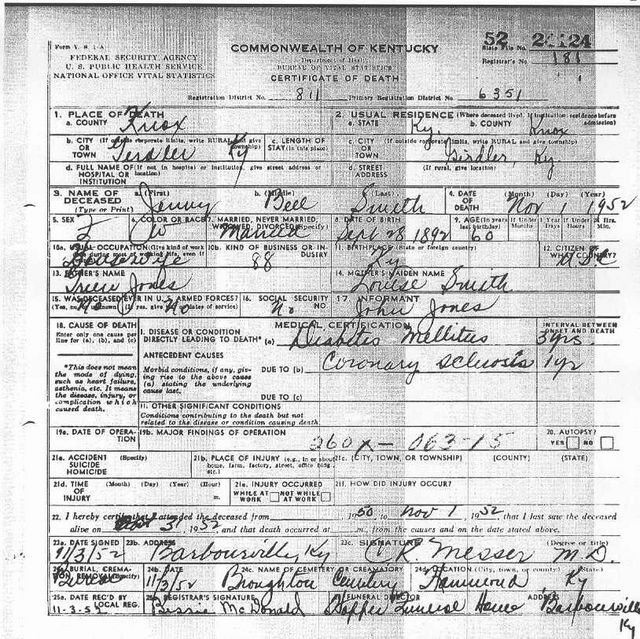 Form V. S. 1-A
FEDERAL SECURITY AGENCY
U. S. PUBLIC HEALTH SERVICE
NATIONAL OFFICE VITAL STATISTICS
COMMONWEALTH OF KENTUCKY
Department of Health
BUREAU OF VITAL STATISTICS
CERTIFICATE OF DEATH
52 24124
State File No.
Registrar's No. 181
Registration District No. 811 Primary Registration District No. 6351
1. PLACE OF DEATH
a. COUNTY Knox
2. USUAL RESIDENCE (Where deceased lived. If institution: residence before admission)
a. STATE Ky. b. COUNTY Knox
b. CITY (If outside corporate limits, write RURAL and give township) OR TOWN Ky
c. LENGTH OF STAY (in this place)
c. CITY (If outside corporate limits, write RURAL and give township) OR TOWN Girdler, Ky
d. FULL NAME OF (If not in hospital or institution, give street address or location) HOSPITAL OR INSTITUTION
d. STREET ADDRESS (If rural, give location)
3. NAME OF DECEASED (Type or Print)
a. (First) Jenny b. (Middle) Bell c. (Last) Smith
4. DATE OF DEATH (Month) (Day) (Year) Nov 1 1952
5. SEX F
6. COLOR OR RACE W
7. MARRIED, NEVER MARRIED, WIDOWED, DIVORCED (Specify) Married
8. DATE OF BIRTH Sept 28 1892
9. AGE (In years last birthday) 60
If Under 1 Year Months Days If Under 24 Hrs. Hours Min.
10a. USUAL OCCUPATION (Give kind of work done during most of working life, even if retired) Housewife
10b. KIND OF BUSINESS OR INDUSTRY 88
11. BIRTHPLACE (State or foreign country) Ky
12. CITIZEN OF WHAT COUNTRY?
13. FATHER'S NAME Jones
14. MOTHER'S MAIDEN NAME Louise Smith
15. WAS DECEASED EVER IN U.S. ARMED FORCES? (Yes, no, or unknown) (If yes, give war or dates of service) No No
16. SOCIAL SECURITY NO. No
17. INFORMANT John Jones
18. CAUSE OF DEATH
Enter only one cause per line for (a), (b), and (c)
*This does not mean the mode of dying, such as heart failure, asthenia, etc. It means the disease, injury, or complication which caused death.
MEDICAL CERTIFICATION
INTERVAL BETWEEN ONSET AND DEATH
I. DISEASE OR CONDITION DIRECTLY LEADING TO DEATH* (a) Diabetes Mellitus 3 yrs
ANTECEDENT CAUSES
Morbid conditions, if any, giving rise to the above cause (a) stating the underlying cause last.
DUE TO (b) Coronary sclerosis 1 yr
DUE TO (c)
II. OTHER SIGNIFICANT CONDITIONS
Conditions contributing to the death but not related to the disease or condition causing death.
19a. DATE OF OPERATION
19b. MAJOR FINDINGS OF OPERATION
260x - 063-15
20. AUTOPSY? YES NO
21a. ACCIDENT SUICIDE HOMICIDE (Specify)
21b. PLACE OF INJURY (e.g., in or about home, farm, factory, street, office bldg., etc.)
21c. (CITY, TOWN, OR TOWNSHIP) (COUNTY) (STATE)
21d. TIME OF INJURY (Month) (Day) (Year) (Hour) m.
21e. INJURY OCCURRED WHILE AT WORK NOT WHILE AT WORK
21f. HOW DID INJURY OCCUR?
22. I hereby certify that I attended the deceased from 1950 to Nov 1 1952 that I last saw the deceased
alive on Oct 31 1952, and that death occurred at m., from the causes and on the date stated above.
23a. DATE SIGNED 11/3/52
23b. ADDRESS Barbourville, Ky
23c. SIGNATURE (Degree or title) C R Messer M.D.
24a. BURIAL, CREMATION, REMOVAL (Specify)
24b. DATE 11/3/52
24c. NAME OF CEMETERY OR CREMATORY Broughton Cemetery
24d. LOCATION (City, town, or county) (State) Hammond Ky
25a. DATE REC'D BY LOCAL REG. 11-3-52
25b. REGISTRAR'S SIGNATURE Bessie McDonald
FUNERAL DIRECTOR ADDRESS Hopper Funeral Home Barbourville
Ky